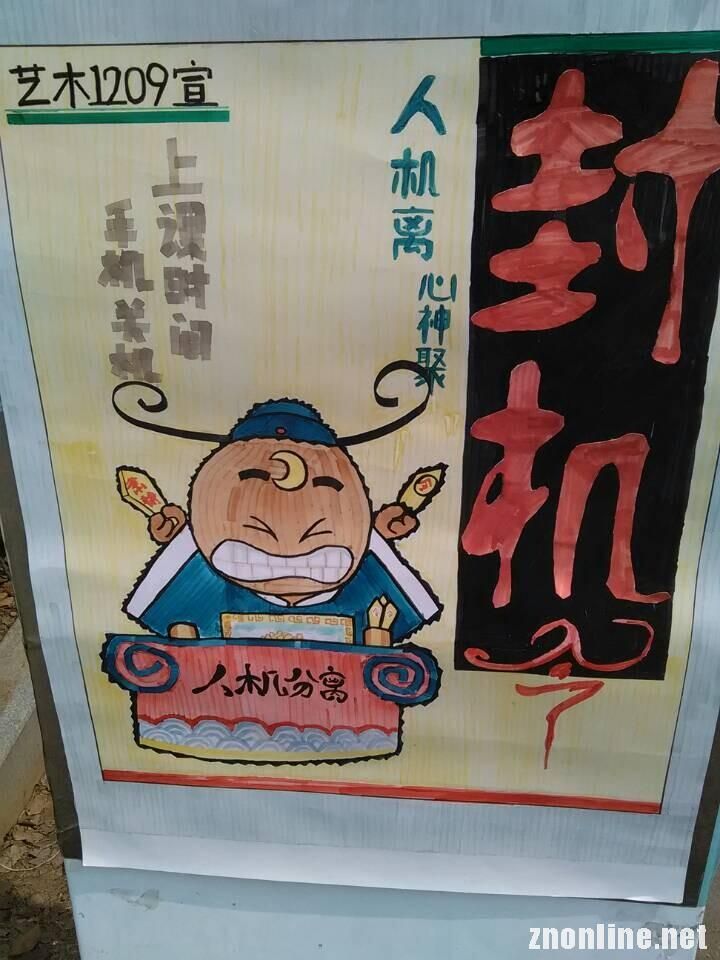 艺术1209宣
封机令
人机离
心神聚
上课时间
手机关机
令
人机分离
znonline.net